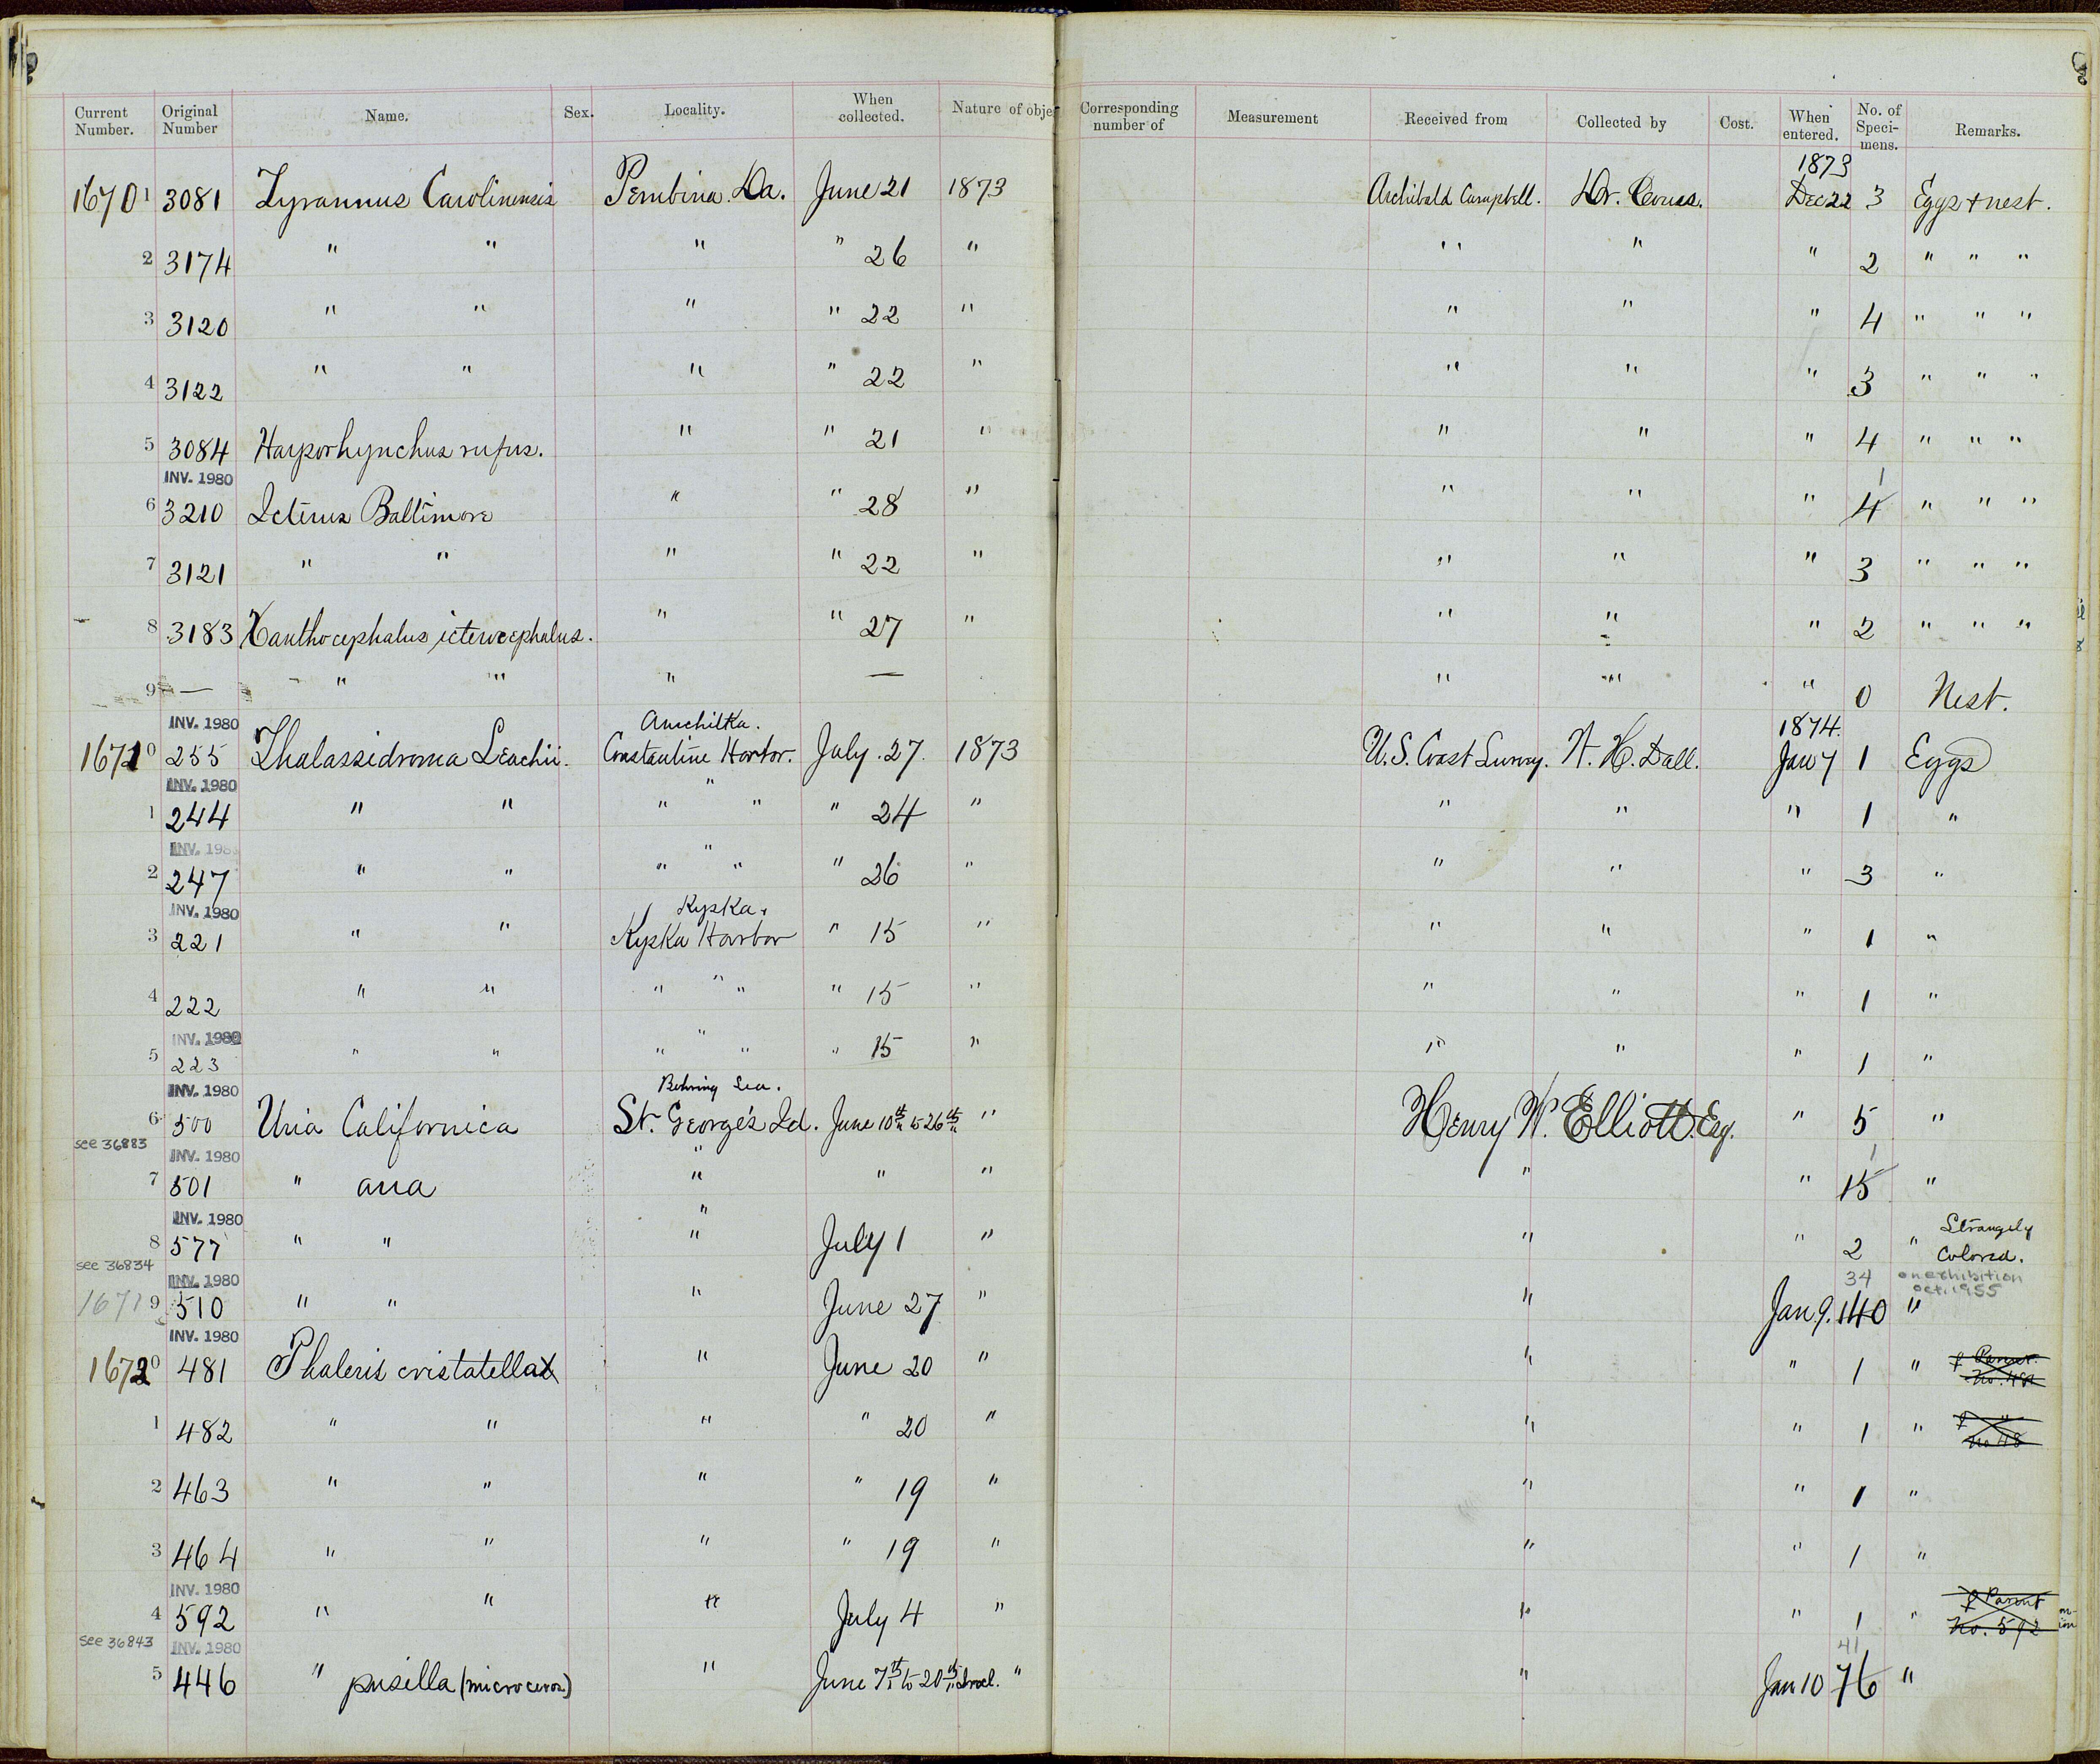 Current Number. Original Number Name. Sex. Locality. When collected. Nature of obje Corresponding number of Measurement Received from Collected by Cost. When entered. No. of Speci-mens. Remarks.
1873
1670 1 3081 Tyrannus Carolinensis Pembina. Da. June 21 1873 Archibald Campbell. Dr. Coues. Dec 22 3 Eggs + nest.
2 3174 " " " " 26 " " " " 2 " " "
3 3120 " " " " 22 " " " " 4 " " "
4 3122 " " " " 22 " " " " 3 " " "
5 3084 Harporhynchus rufus. " " 21 " " " " 4 " " "
INV. 1980 1
6 3210 Icterus Baltimore " " 28 " " " " 4 " " "
7 3121 " " " " 22 " " " " 3 " " "
8 3183 Xanthocephalus icterocephalus. " " 27 " " " " 2 " " "
9 — " " " — " " " 0 Nest.
INV. 1980 Amchitka. 1874.
1671 0 255 Thalassidroma Leachii. Constantine Harbor. July. 27. 1873 U.S. Coast Survey. W. H. Dall. Jan 7 1 Eggs
INV. 1980 "
1 244 " " " " " 24 " " " " 1 "
INV. 198 "
2 247 " " " " " 26 " " " " 3 "
INV. 1980 Kyska.
3 221 " " Kyska Harbor " 15 " " " " 1 "
"
4 222 " " " " " 15 " " " " 1 "
INV. 1980 "
5 223 " " " " " 15 " " " " 1 "
INV. 1980 Behring Sea.
6 500 Uria Californica St. George's Id. June 10th to 26th " Henry W. Elliott. Esq. " 5 "
see 36883 INV. 1980 " 1
7 501 " arra " " " " " 15 "
INV. 1980 " Strangely
8 577 " " " July 1 " " " 2 " Colored.
see 36834 INV. 1980 34 on exhibition Oct. 1955
1671 9 510 " " " June 27 " " Jan 9. 140 "
INV. 1980
1672 0 481 Phaleris cristatella " June 20 " " " 1 " ♀ Parent. No. 481
1 482 " " " " 20 " " " 1 " ♀ " No 48
2 463 " " " " 19 " " " 1 "
3 464 " " " " 19 " " " 1 "
INV. 1980
4 592 " " " July 4 " " " 1 " ♀ Parent No. 592
see 36843 INV. 1980 41
5 446 " pusilla (microceros) " June 7th to 20th Incl. " " Jan 10 76 "